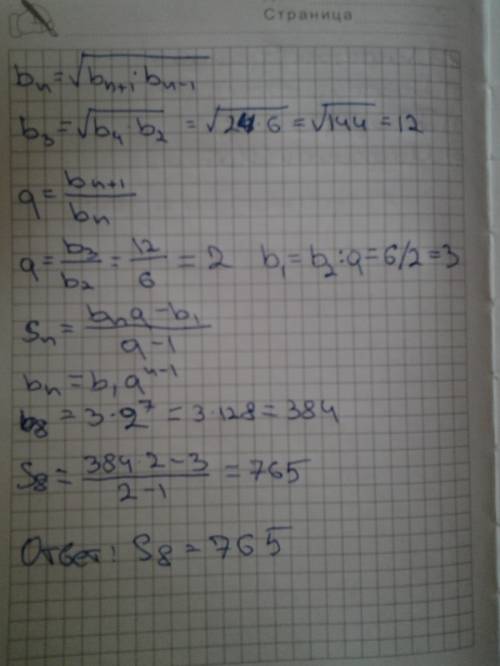 Страница
bₙ = √(bₙ₊₁ · bₙ₋₁)
b₃ = √(b₄ · b₂) = √(24 · 6) = √144 = 12
q = bₙ₊₁ / bₙ
q = b₃ / b₂ = 12 / 6 = 2 b₁ = b₂ : q = 6/2 = 3
Sₙ = (bₙq - b₁) / (q - 1)
bₙ = b₁qⁿ⁻¹
b₈ = 3 · 2⁷ = 3 · 128 = 384
S₈ = (384 · 2 - 3) / (2 - 1) = 765
Ответ: S₈ = 765